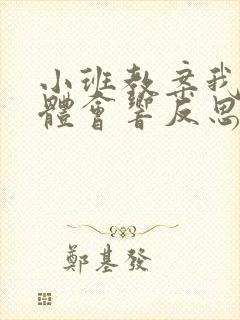 小班教案我
體會響反思
鄭基發